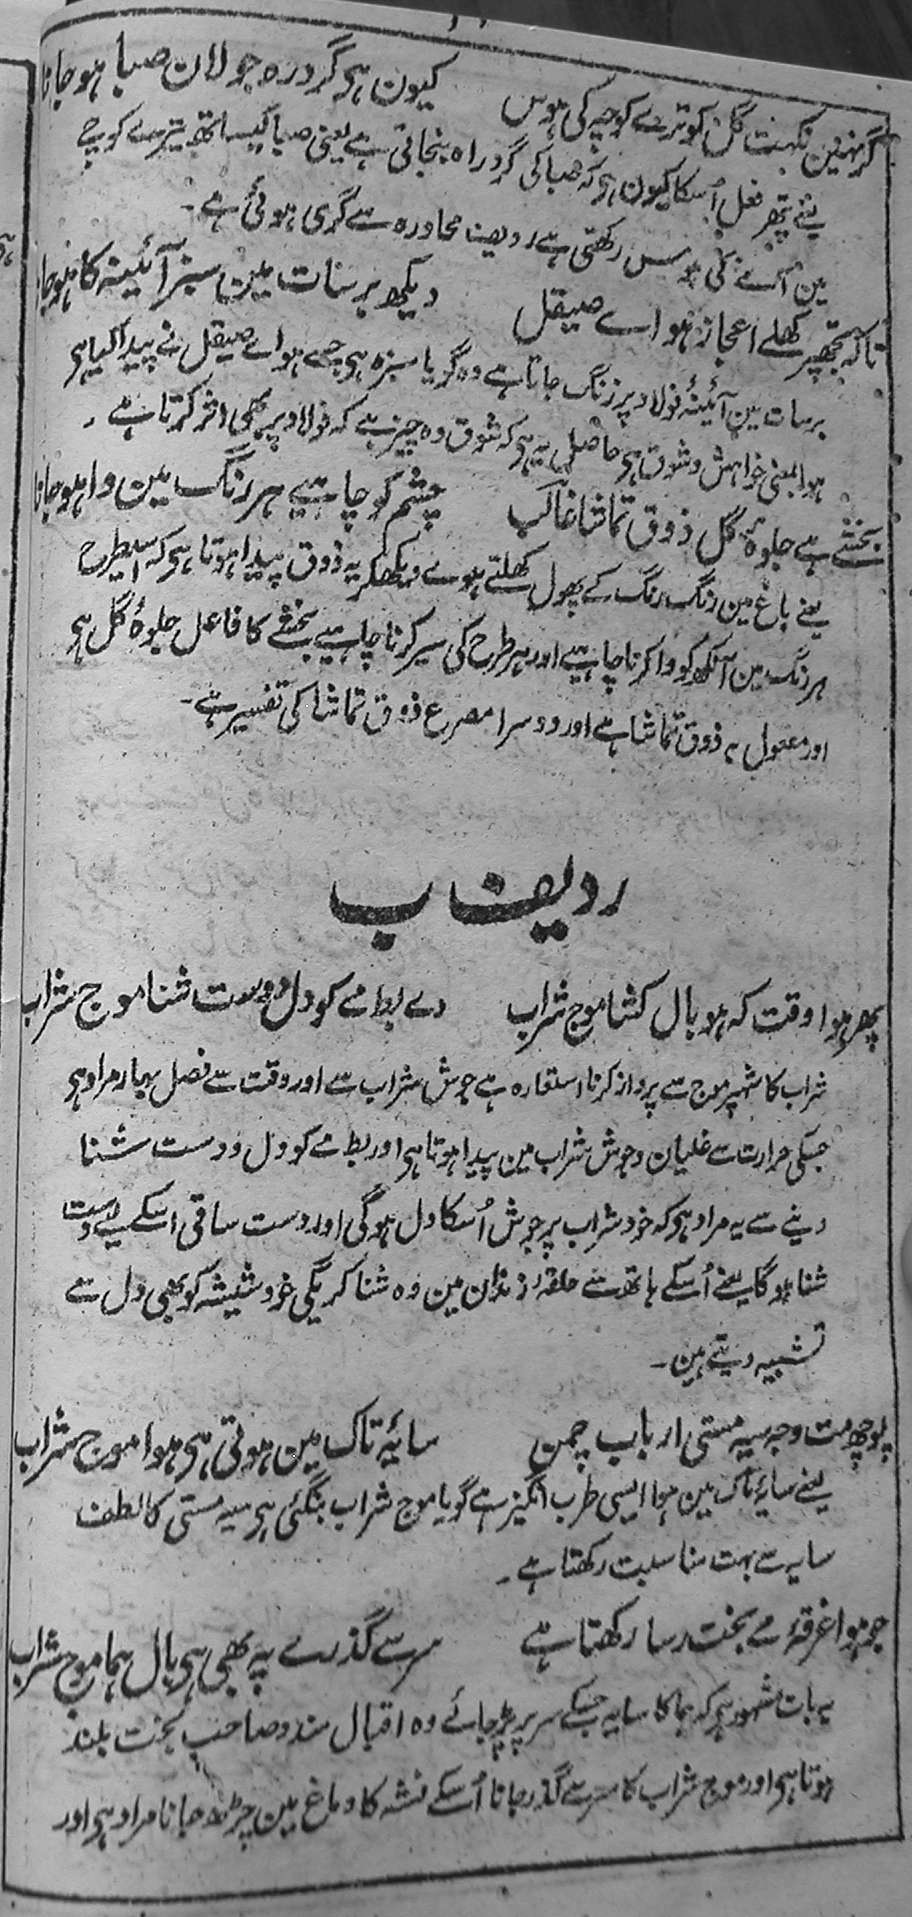 گر نہین نکہت گل کو ترے کوچہ کی ہوس کیون ہی گرد رہ جولان صبا ہو جانا
یعنے پھر فعل اُسکا کیون ہی کہ صبا کی گرد راہ بنجاتی ہے یعنی صبا کیساتھ تیرے کوچے
مین آنے کی ہوس رکھتی ہے ردیف محاورہ سے گری ہوئی ہے۔
تاکہ تجھپر کھلے اعجاز ہواے صیقل دیکھ برسات مین سبز آئینہ کا ہو جانا
برسات مین آئینۂ فولاد پر زنگ جاتا ہے وہ گویا سبزہ ہی جسے ہواے صیقل نے پیدا کیا ہی
ہوا بمعنی خواہش و شوق ہی حاصل یہ ہی کہ شوق وہ چیز ہے کہ فولاد پر بھی اثر کرتا ہے۔
بخشے ہے جلوۂ گل ذوق تماشا غالب چشم کو چاہیے ہر رنگ مین وا ہو جانا
یعنے باغ مین رنگ رنگ کے پھول کھلتے ہوے دیکھکر یہ ذوق پیدا ہوتا ہی کہ اسیطرح
ہر رنگ مین آنکھ کو وا کرنا چاہیے اور ہر طرح کی سیر کرنا چاہیے بخشے کا فاعل جلوۂ گل ہی
اور مفعول بہ ذوق تماشا ہے اور دوسرا مصرع ذوق تماشا کی تفسیر ہے۔
ردیف ب
پھر ہوا وقت کہ ہو بال کشا موج شراب دے بط مے کو دل و دست شنا موج شراب
شراب کا شہپر موج سے پرواز کرنا استعارہ ہے جوش شراب سے اور وقت سے فصل بہار مراد ہی
جسکی حرارت سے غلیان و جوش شراب مین پیدا ہوتا ہی اور بط مے کو دل و دست شنا
دینے سے یہ مراد ہی کہ خود شراب پر جوش اُسکا دل ہوگی اور دست ساقی اسکے لیے دست
شنا ہوگا یعنے اُسکے ہاتھ سے حلقۂ رندان مین وہ شنا کریگی خود شیشہ کو بھی دل سے
تشبیہ دیتے ہین۔
پوچھ مت وجہ سیہ مستی ارباب چمن سایۂ تاک مین ہوتی ہی ہوا موج شراب
یعنے سایۂ تاک مین ہوا ایسی طرب انگیز ہے گویا موج شراب بنگئی ہی سیہ مستی کا لطف
سایہ سے بہت مناسبت رکھتا ہے۔
جو ہوا غرقۂ مے بخت رسا رکھتا ہے سر سے گذرے پہ بھی ہی بال ہما موج شراب
یہ بات مشہور ہی کہ ہما کا سایہ جسکے سر پر پڑجائے وہ اقبال مند و صاحب بخت بلند
ہوتا ہی اور موج شراب کا سر سے گذر جانا اُسکے نشہ کا دماغ مین چڑھ جانا مراد ہی اور